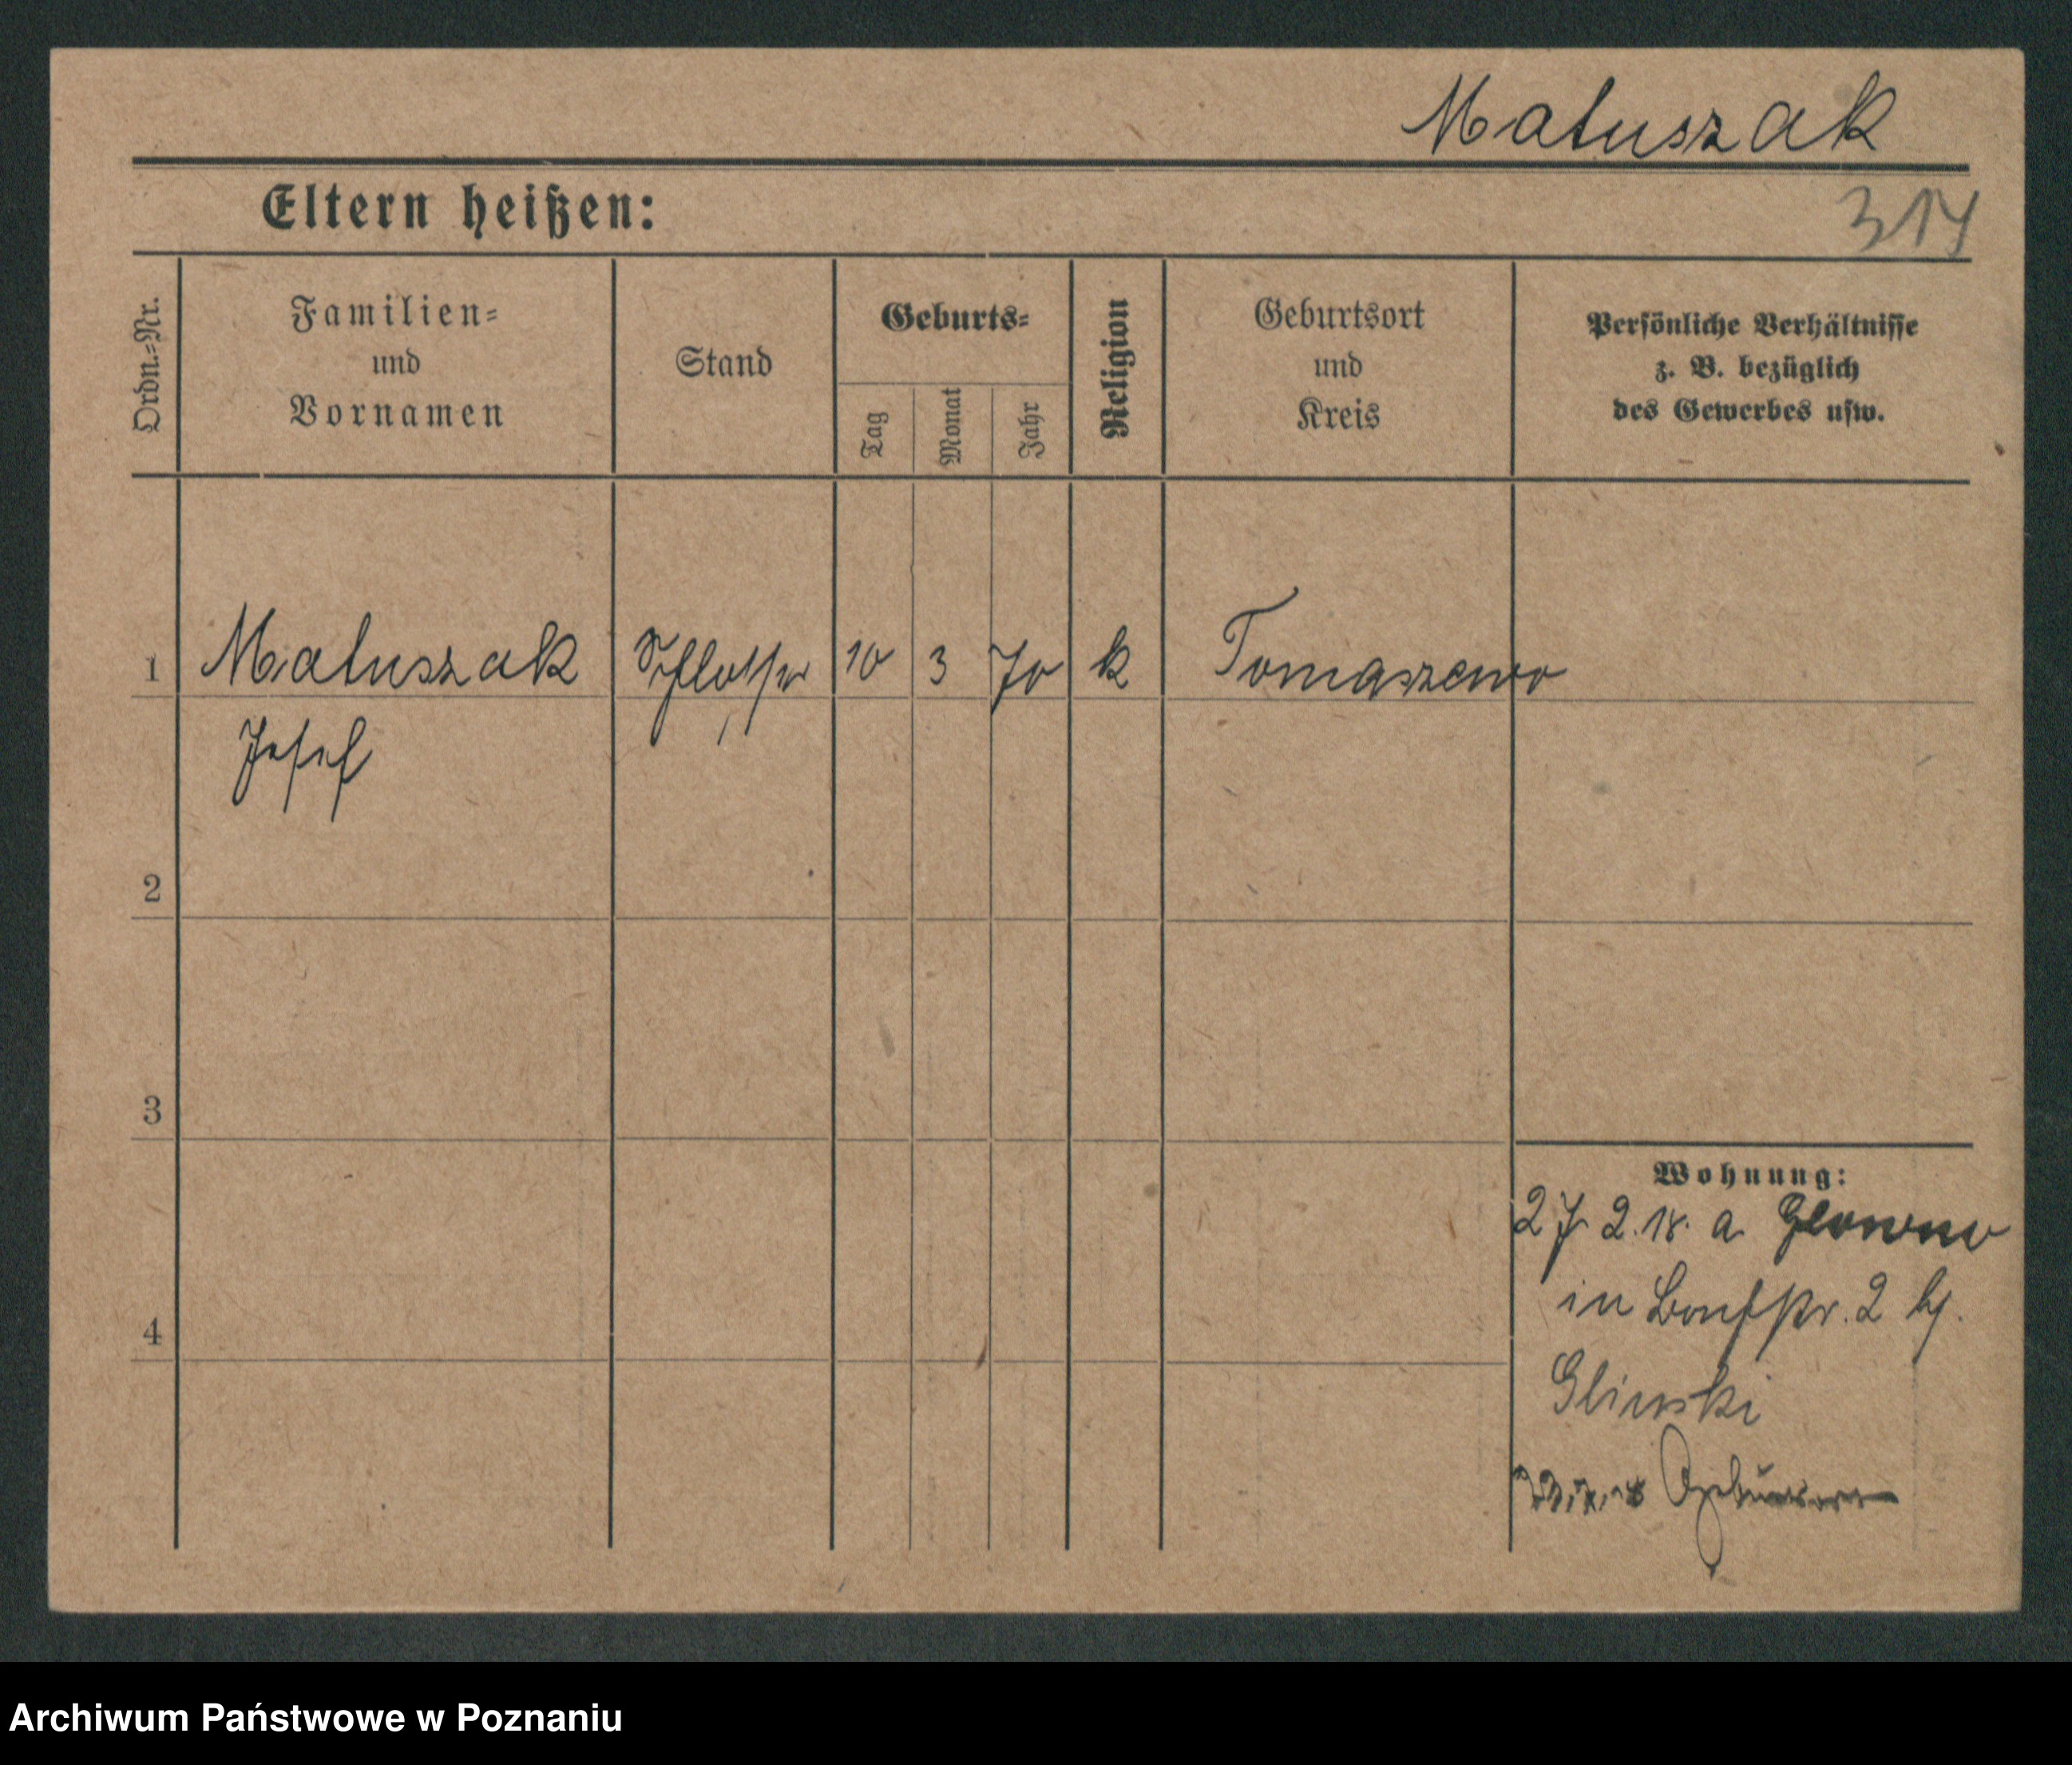 Matuszak
Eltern heißen:
314
Ordn.=Nr.
Familien=
und
Vornamen
Stand
Geburts=
Tag
Monat
Jahr
Religion
Geburtsort
und
Kreis
Persönliche Verhältnisse
z. B. bezüglich
des Gewerbes usw.
1 Matuszak Schlosser 10 3 70 k Tomaszewo
Josef
2
3
4
Wohnung:
27 2. 18. a Glowno
in 2 bj.
Glinski
Archiwum Państwowe w Poznaniu